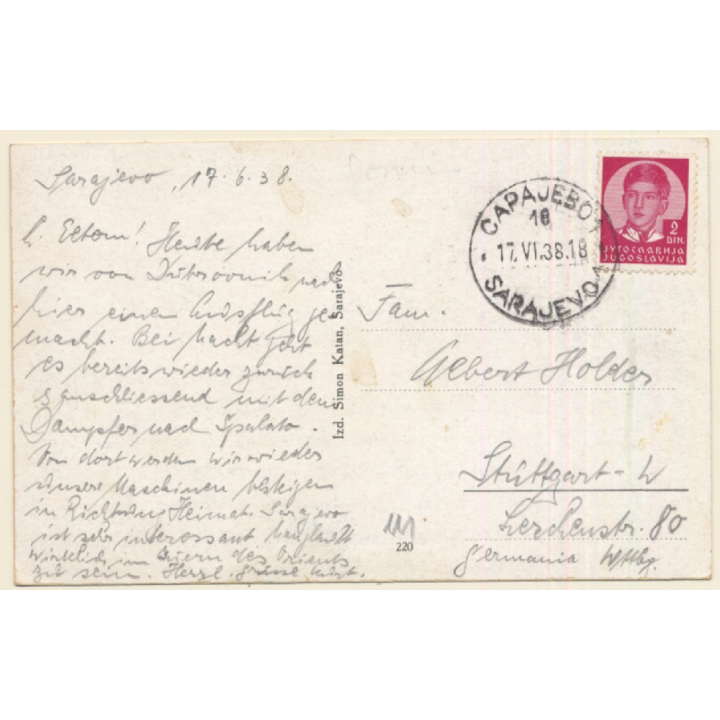 Sarajevo, 17.6.38.
L. Eltern! Heute haben
wir von Dubrovnik nach
hier einen Ausflug ge-
macht. Bei Nacht geht
es bereits wieder zurück
& anschliessend mit dem
Dampfer nach Spalato.
Von dort werden wir wieder
unsere Maschinen besteigen
in Richtung Heimat. Sarajevo
ist sehr interessant man glaubt
wirklich im Innern des Orients
zu sein. Herzl. Grüsse
Izd. Simon Katan, Sarajevo
САРАЈЕВО 1
18
17.VI.38.18
SARAJEVO 1
2
DIN.
ЈУГОСЛАВИЈА
JUGOSLAVIJA
Fam.
Albert Holder
Stuttgart-W
Lerchenstr. 80
Germania Wttbg.
220